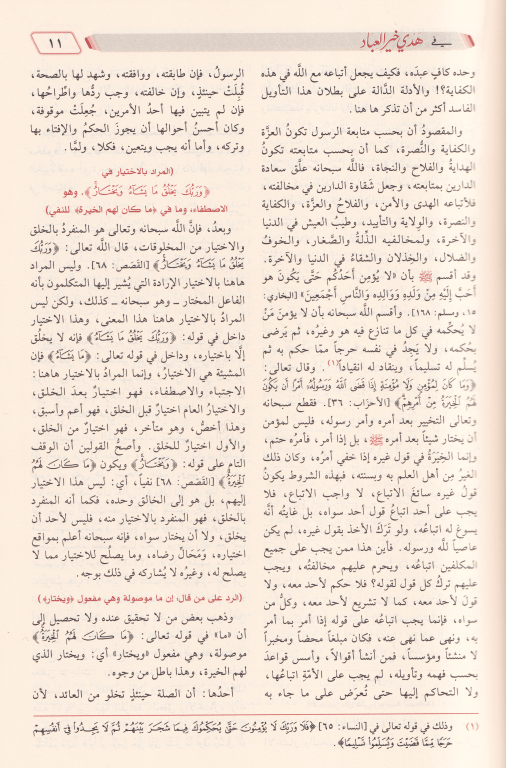 ١١
في هدي خير العباد
وحده كافٍ عبدَه، فكيف يجعل أتباعه مع اللَّه في هذه
الكفاية؟! والأدلة الدَّالة على بطلان هذا التأويل
الفاسد أكثر من أن تذكر ها هنا.
والمقصودُ أن بحسب متابعة الرسول تكونُ العزَّة
والكفاية والنُّصرة، كما أن بحسب متابعته تكونُ
الهدايةُ والفلاح والنجاة، فاللَّه سبحانه علَّق سعادة
الدارين بمتابعته، وجعل شقاوة الدارين في مخالفته،
فلأتباعه الهدى والأمن، والفلاحُ والعزَّة، والكفاية
والنصرة، والوِلاية والتأييد، وطِيبُ العيش في الدنيا
والآخرة، ولمخالفيه الذِّلةُ والصَّغار، والخوفُ
والضلال، والخِذلان والشقاءُ في الدنيا والآخرة.
وقد أقسم ﷺ بأن «لا يُؤمِن أَحَدُكُم حَتَّى يَكُونَ هو
أَحَبَّ إلَيهِ مِنْ وَلَدِهِ وَوَالِدِه وَالنَّاسِ أَجْمَعِينَ» [البخاري:
١٥، ومسلم: ١٦٨]. وأقسم اللَّه سبحانه بأن لا يؤمنَ مَنْ
لا يُحكِّمه في كل ما تنازع فيه هو وغيرُه، ثم يَرضى
بحُكمه، ولا يَجِدُ في نفسه حرجاً ممَّا حكم به ثم
يُسلِّم له تسليماً، وينقاد له انقياداً(١). وقال تعالى:
﴿وَمَا كَانَ لِمُؤْمِنٍ وَلَا مُؤْمِنَةٍ إِذَا قَضَى اللَّهُ وَرَسُولُهُ أَمْرًا أَن يَكُونَ
لَهُمُ الْخِيَرَةُ مِنْ أَمْرِهِمْ﴾ [الأحزَاب: ٣٦]. فقطع سبحانه
وتعالى التخيير بعد أمره وأمر رسوله، فليس لمؤمن
أن يختار شيئاً بعد أمره ﷺ، بل إذا أمر، فأمرُه حتم،
وإنما الخِيَرَةُ في قول غيره إذا خفي أمرُه، وكان ذلك
الغيرُ من أهل العلم به وبسنته، فبهذه الشروط يكونُ
قولُ غيره سائغَ الاتباع، لا واجب الاتباع، فلا
يجب على أحد اتباعُ قول أحد سواه، بل غايتُه أنَّه
يسوغ له اتباعُه، ولو تَركَ الأخذ بقول غيره، لم يكن
عاصياً للَّه ورسوله. فأين هذا ممن يجب على جميع
المكلفين اتباعُه، ويحرم عليهم مخالفتُه، ويجب
عليهم تركُ كل قول لقوله؟ فلا حكم لأحد معه، ولا
قولَ لأحد معه، كما لا تشريع لأحد معه، وكلُّ من
سواه، فإنما يجب اتباعُه على قوله إذا أمر بما أمر
به، ونهى عما نهى عنه، فكان مبلغاً محضاً ومخبراً
لا منشئاً ومؤسساً، فمن أنشأ أقوالاً، وأسس قواعدَ
بحسب فهمه وتأويله، لم يجب على الأمَّةِ اتباعُها،
ولا التحاكم إليها حتى تُعرَض على ما جاء به
الرسولُ، فإن طابقته، ووافقته، وشهد لها بالصحة،
قُبِلَتْ حينئذٍ، وإن خالفته، وجب ردُّها واطِّراحُها،
فإن لم يتبين فيها أحدُ الأمرين، جُعِلَتْ موقوفة،
وكان أحسنُ أحوالها أن يجوزَ الحكمُ والإفتاء بها
وتركه، وأما أنه يجب ويتعين، فكلا، ولمَّا.
(المراد بالاختيار في
﴿وَرَبُّكَ يَخْلُقُ مَا يَشَاءُ وَيَخْتَارُ﴾. وهو
الاصطفاء، وما في ﴿ما كان لهم الخيرة﴾ للنفي)
وبعدُ، فإنَّ اللَّه سبحانه وتعالى هو المنفردُ بالخلق
والاختيار من المخلوقات، قال اللَّه تعالى: ﴿وَرَبُّكَ
يَخْلُقُ مَا يَشَاءُ وَيَخْتَارُ﴾ [القَصَص: ٦٨]. وليس المراد
هاهنا بالاختيار الإرادة التي يُشير إليها المتكلمون بأنه
الفاعل المختار ـ وهو سبحانه ـ كذلك، ولكن ليس
المرادُ بالاختيار هاهنا هذا المعنى، وهذا الاختيار
داخل في قوله: ﴿وَرَبُّكَ يَخْلُقُ مَا يَشَاءُ﴾ فإنه لا يخلُق
إلَّا باختياره، وداخل في قوله تعالى: ﴿مَا يَشَاءُ﴾ فإن
المشيئة هي الاختيارُ، وإنما المرادُ بالاختيار هاهنا:
الاجتباء والاصطفاء، فهو اختيارٌ بعدَ الخلق،
والاختيارُ العام اختيارٌ قبلَ الخلق، فهو أعم وأسبق،
وهذا أخصُّ، وهو متأخر، فهو اختيارٌ من الخلق،
والأول اختيارٌ للخلق. وأصحُّ القولين أن الوقف
التام على قوله: ﴿وَيَخْتَارُ﴾ ويكون ﴿مَا كَانَ لَهُمُ
الْخِيَرَةُ﴾ [القَصَص: ٦٨] نفياً، أي: ليس هذا الاختيار
إليهم، بل هو إلى الخالق وحده، فكما أنه المنفرد
بالخلق، فهو المنفرد بالاختيار منه، فليس لأحد أن
يخلق، ولا أن يختار سواه، فإنه سبحانه أعلم بمواقع
اختياره، وَمَحَالِّ رضاه، وما يصلُح للاختيار مما لا
يصلح له، وغيرُه لا يُشاركه في ذلك بوجه.
(الرد على من قال: إن ما موصولة وهي مفعول ﴿ويختار﴾)
وذهب بعض من لا تحقيق عنده ولا تحصيل إلى
أن «ما» في قوله تعالى: ﴿مَا كَانَ لَهُمُ الْخِيَرَةُ﴾
موصولة، وهي مفعول «ويختار» أي: ويختار الذي
لهم الخيرة، وهذا باطل من وجوه.
أحدُها: أن الصلة حينئذٍ تخلو من العائد، لأن
(١) وذلك في قوله تعالى في [النساء: ٦٥] ﴿فَلَا وَرَبِّكَ لَا يُؤْمِنُونَ حَتَّى يُحَكِّمُوكَ فِيمَا شَجَرَ بَيْنَهُمْ ثُمَّ لَا يَجِدُوا فِي أَنفُسِهِمْ
حَرَجًا مِّمَّا قَضَيْتَ وَيُسَلِّمُوا تَسْلِيمًا﴾.